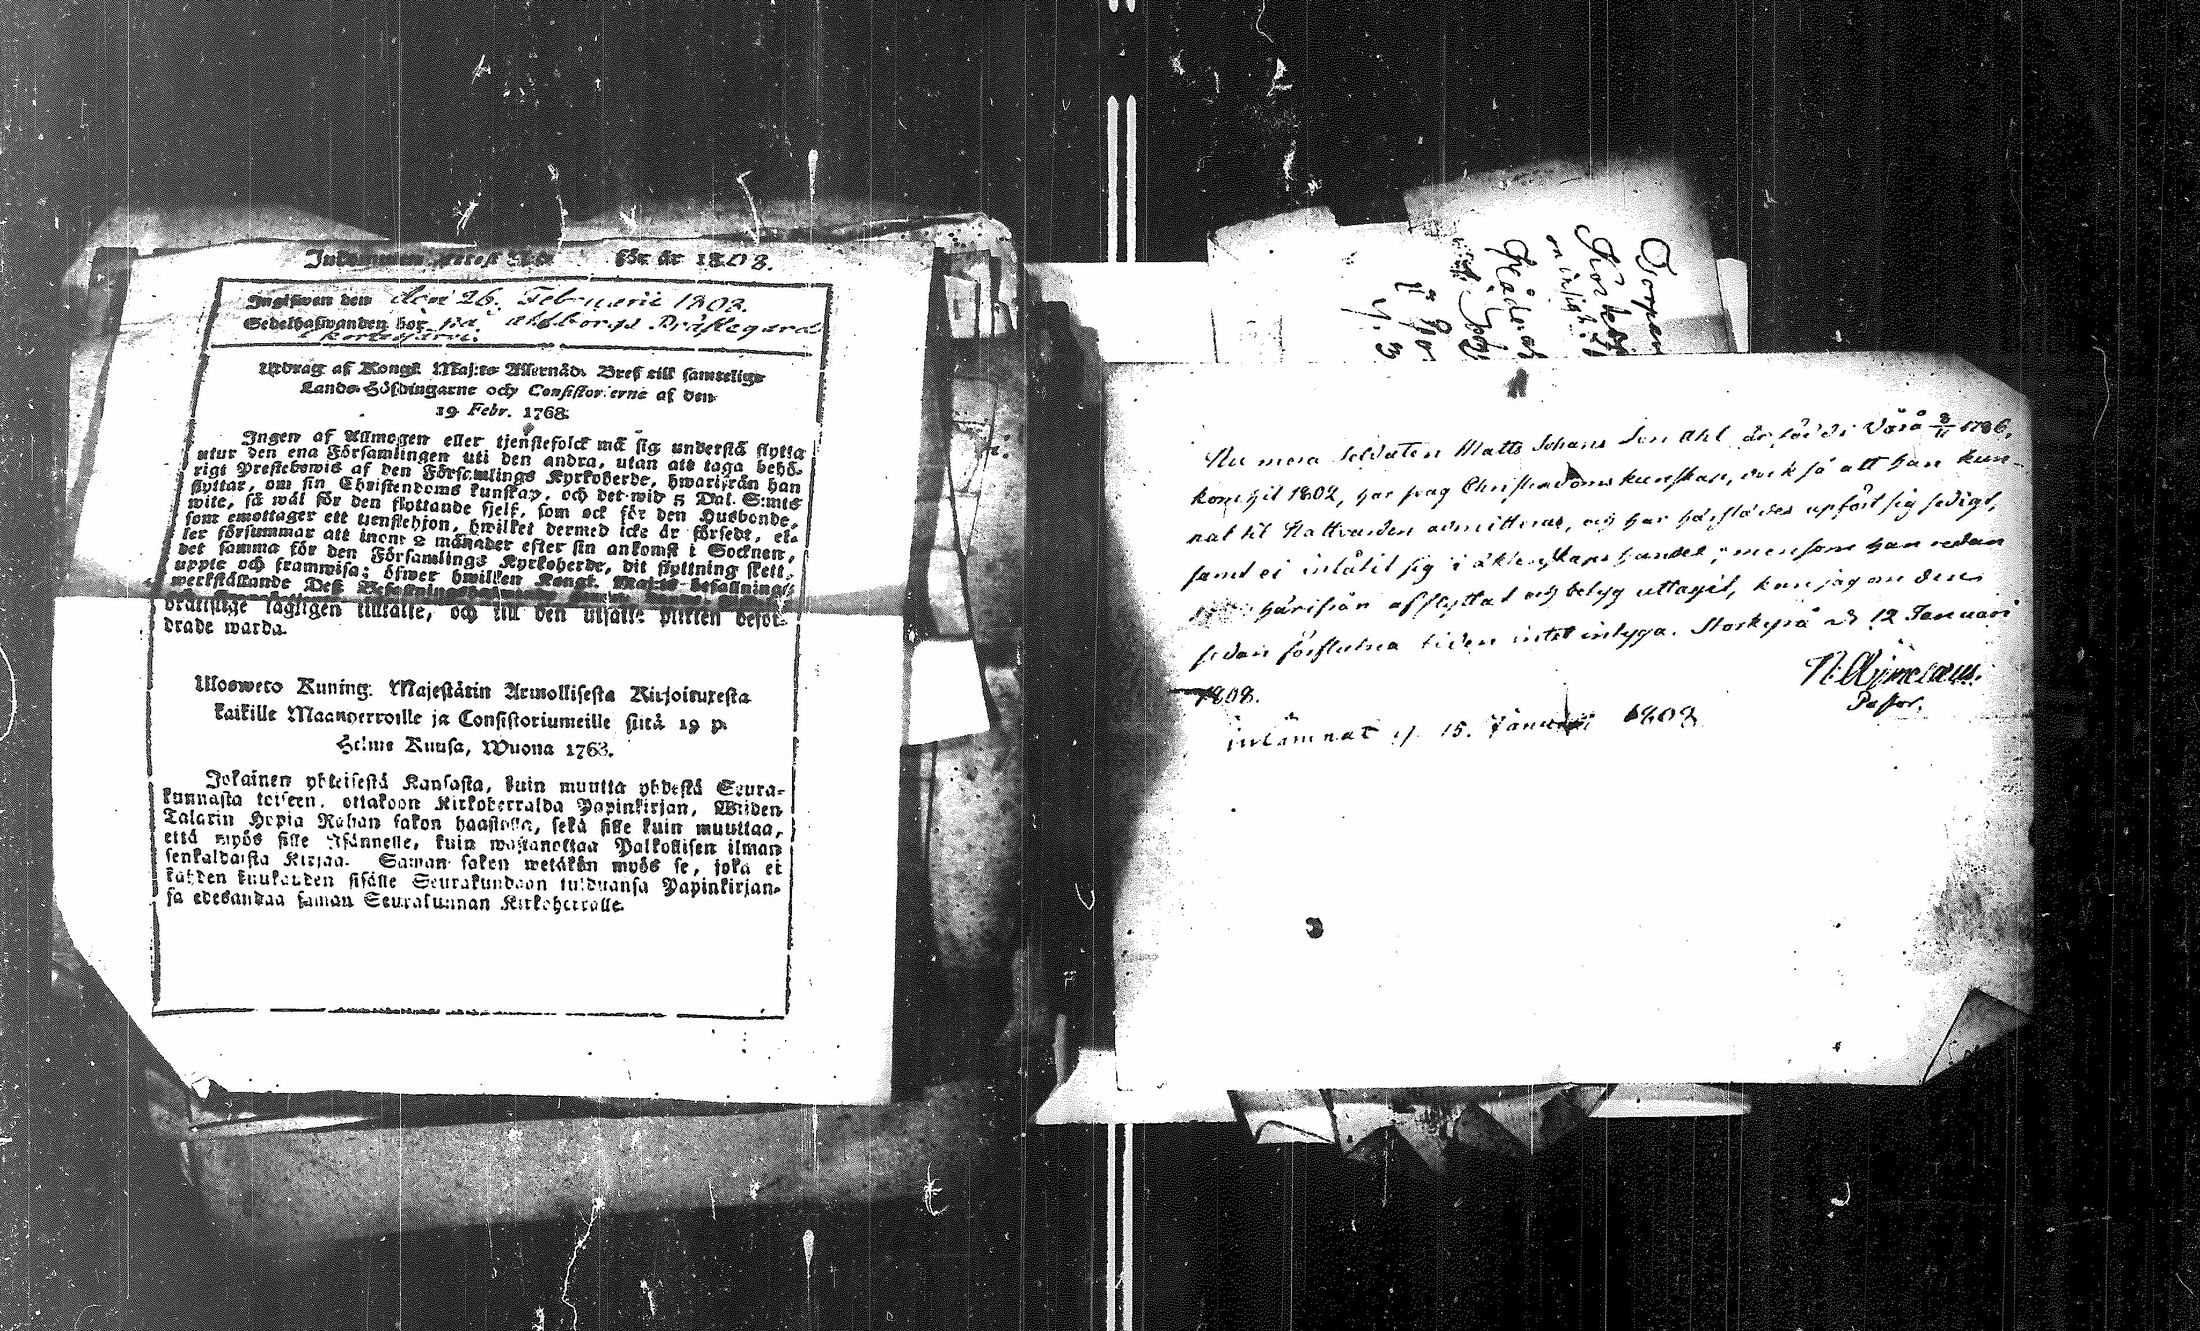 för år 1808.
Ingifwen den den 26. Februarii 1808.
Sedelhafwanden bor på Ahlborgs Prästegård
i Kortesjärvi.
Utdrag af Kongl. Maj:ts Allernåd. Bref till samtelige
Lands-Höfdingarne och Consistorierne af den
19 Febr. 1768.
Ingen af Allmogen eller tjenstefolck må sig understå flytta
utur den ena Församlingen uti den andra, utan att taga behö-
rigt Prestebewis af den Församlings Kyrkoherde, hwarifrån han
flyttar, om sin Christendoms kunskap, och det wid 5 Dal. S:mts
wite, så wäl för den flyttande sjelf, som ock för den Husbonde,
som emottager ett tjenstehjon, hwilket dermed icke är försedt, el-
ler försummar att inom 2 månader efter sin ankomst i Socknen,
det samma för den Församlings Kyrkoherde, dit flyttning skett,
uppte och framwisa; öfwer hwilken Kongl. Maj:ts befallning
werkställande Deß Befallningshafwande
draftlige lagligen tillfälle, och till den utsatte plitten beför-
drade warda.
Ulosweto Kuning. Majestätin Armollisesta Kirjoituxesta
kaikille Maanherroille ja Consistoriumeille siitä 19 p.
Helme Kuusa, Wuona 1768.
Jokainen yhteisestä Kansasta, kuin muutta yhdestä Seura-
kunnasta toiseen, ottakoon Kirkoherralda Papinkirjan, Wiiden
Talarin Hopia Rahan sakon haastolla, sekä sille kuin muuttaa,
että myös sille Isännelle, kuin wastanottaa Palkollisen ilman
senkaldaista Kirjaa. Saman saken wetäkän myös se, joka ei
kahden kuukauden sisälle Seurakundaan tulduansa Papinkirjan-
sa edesandaa saman Seurakunnan Kirkoherralle.
Torpar
Nu mera soldaten Matts Johans son Ahl är född i Vörå 8/11 1786,
kom hit 1802, har svag Christendoms kunskap, dock så att han kun-
nat til Nattvarden admitteras, och har härstädes upfört sig sedigt,
samt ei inlåtit sig i äktenskaps handel; men som han redan
härifrån afflyttat och betyg uttagit, kan jag om den
sedan förflutna tiden intet intyga. Storkyro d. 12 Januari
1808.
Pastor.
inlämnat d. 15. Januari 1808